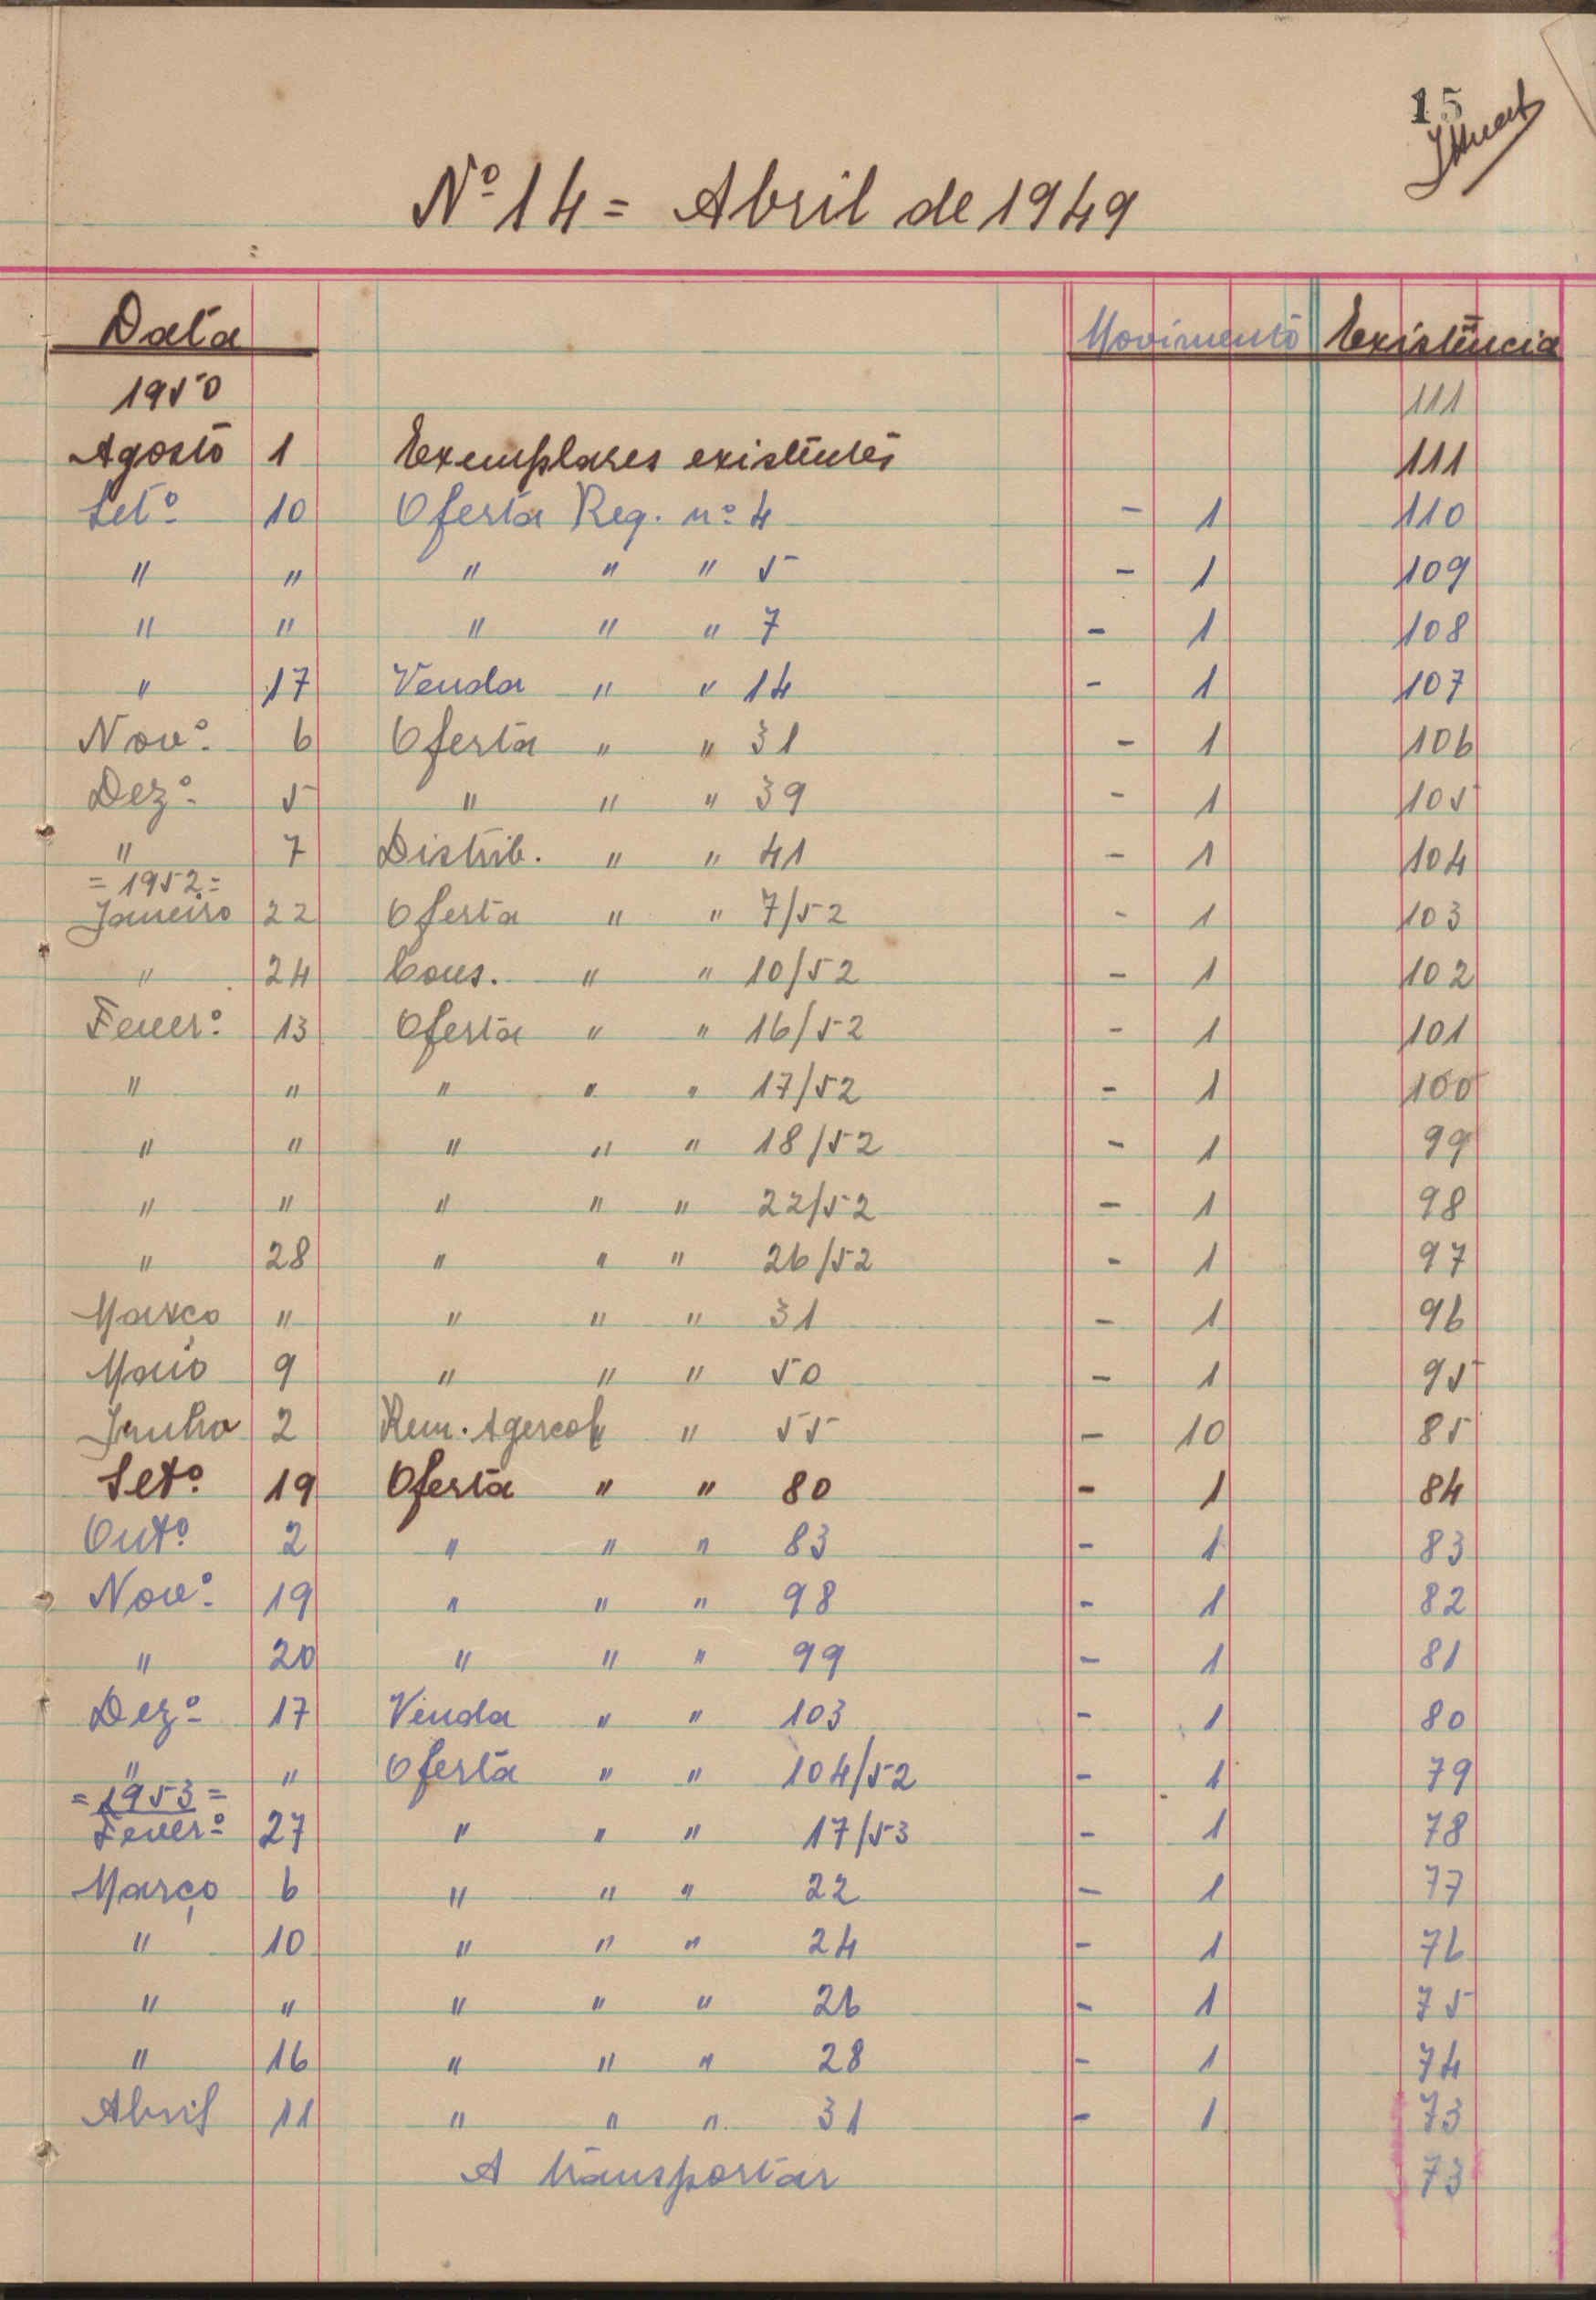 15
Nº 14 = Abril de 1949
Data Movimento Existência
1950 111
Agosto 1 Exemplares existentes 111
Setº 10 Oferta Req. nº 4 - 1 110
" " " " " 5 - 1 109
" " " " " 7 - 1 108
" 17 Venda " " 14 - 1 107
Novº 6 Oferta " " 31 - 1 106
Dezº 5 " " " 39 - 1 105
" 7 Distrib. " " 41 - 1 104
= 1952 =
Janeiro 22 Oferta " " 7/52 - 1 103
" 24 Cons. " " 10/52 - 1 102
Feverº 13 Oferta " " 16/52 - 1 101
" " " " " 17/52 - 1 100
" " " " " 18/52 - 1 99
" " " " " 22/52 - 1 98
" 28 " " " 26/52 - 1 97
Março " " " " 31 - 1 96
Maio 9 " " " 50 - 1 95
Junho 2 Rem. Agercol " " 55 - 10 85
Setº 19 Oferta " " 80 - 1 84
Outº 2 " " " 83 - 1 83
Novº 19 " " " 98 - 1 82
" 20 " " " 99 - 1 81
Dezº 17 Venda " " 103 - 1 80
" " Oferta " " 104/52 - 1 79
= 1953 =
Feverº 27 " " " 17/53 - 1 78
Março 6 " " " 22 - 1 77
" 10 " " " 24 - 1 76
" " " " " 26 - 1 75
" 16 " " " 28 - 1 74
Abril 11 " " " 31 - 1 73
A transportar 73